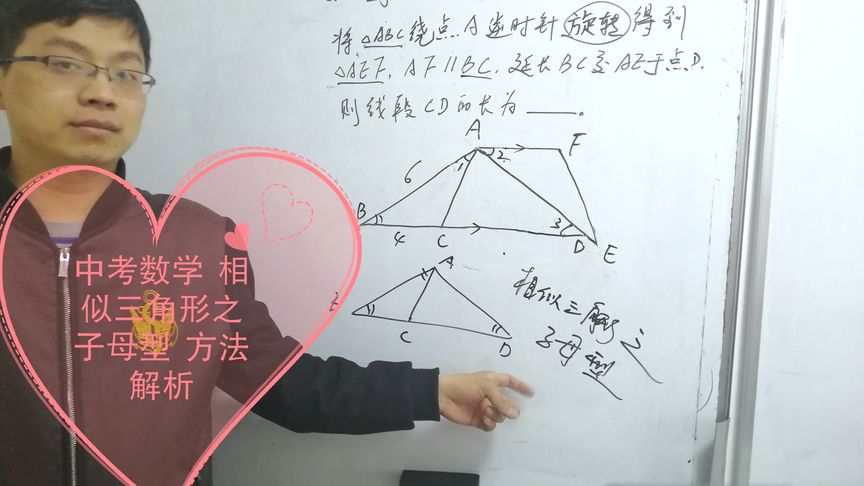 将△ABC绕点A逆时针旋转得到
△AEF,AF∥BC,延长BC交AE于点D,
则线段CD的长为____。
A
F
1
2
6
B
4
C
3
D
E
A
C
D
相似三角形之
子母型
中考数学 相
似三角形之
子母型 方法
解析